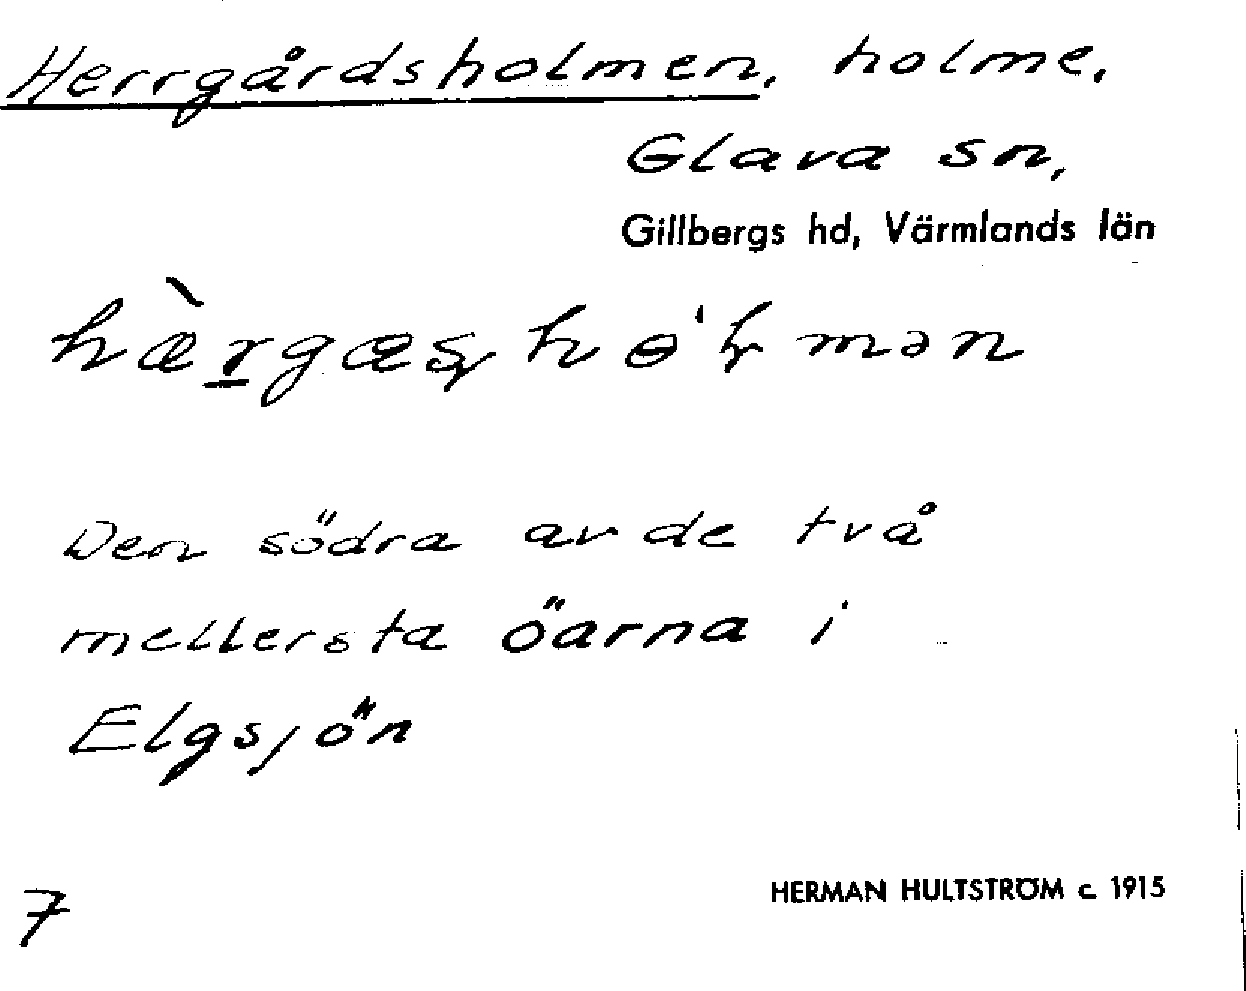 Herrgårdsholmen, holme,
Glava sn,
Gillbergs hd, Värmlands län
Den södra av de två
mellersta öarna i
Elgsjön
7
HERMAN HULTSTRÖM c. 1915